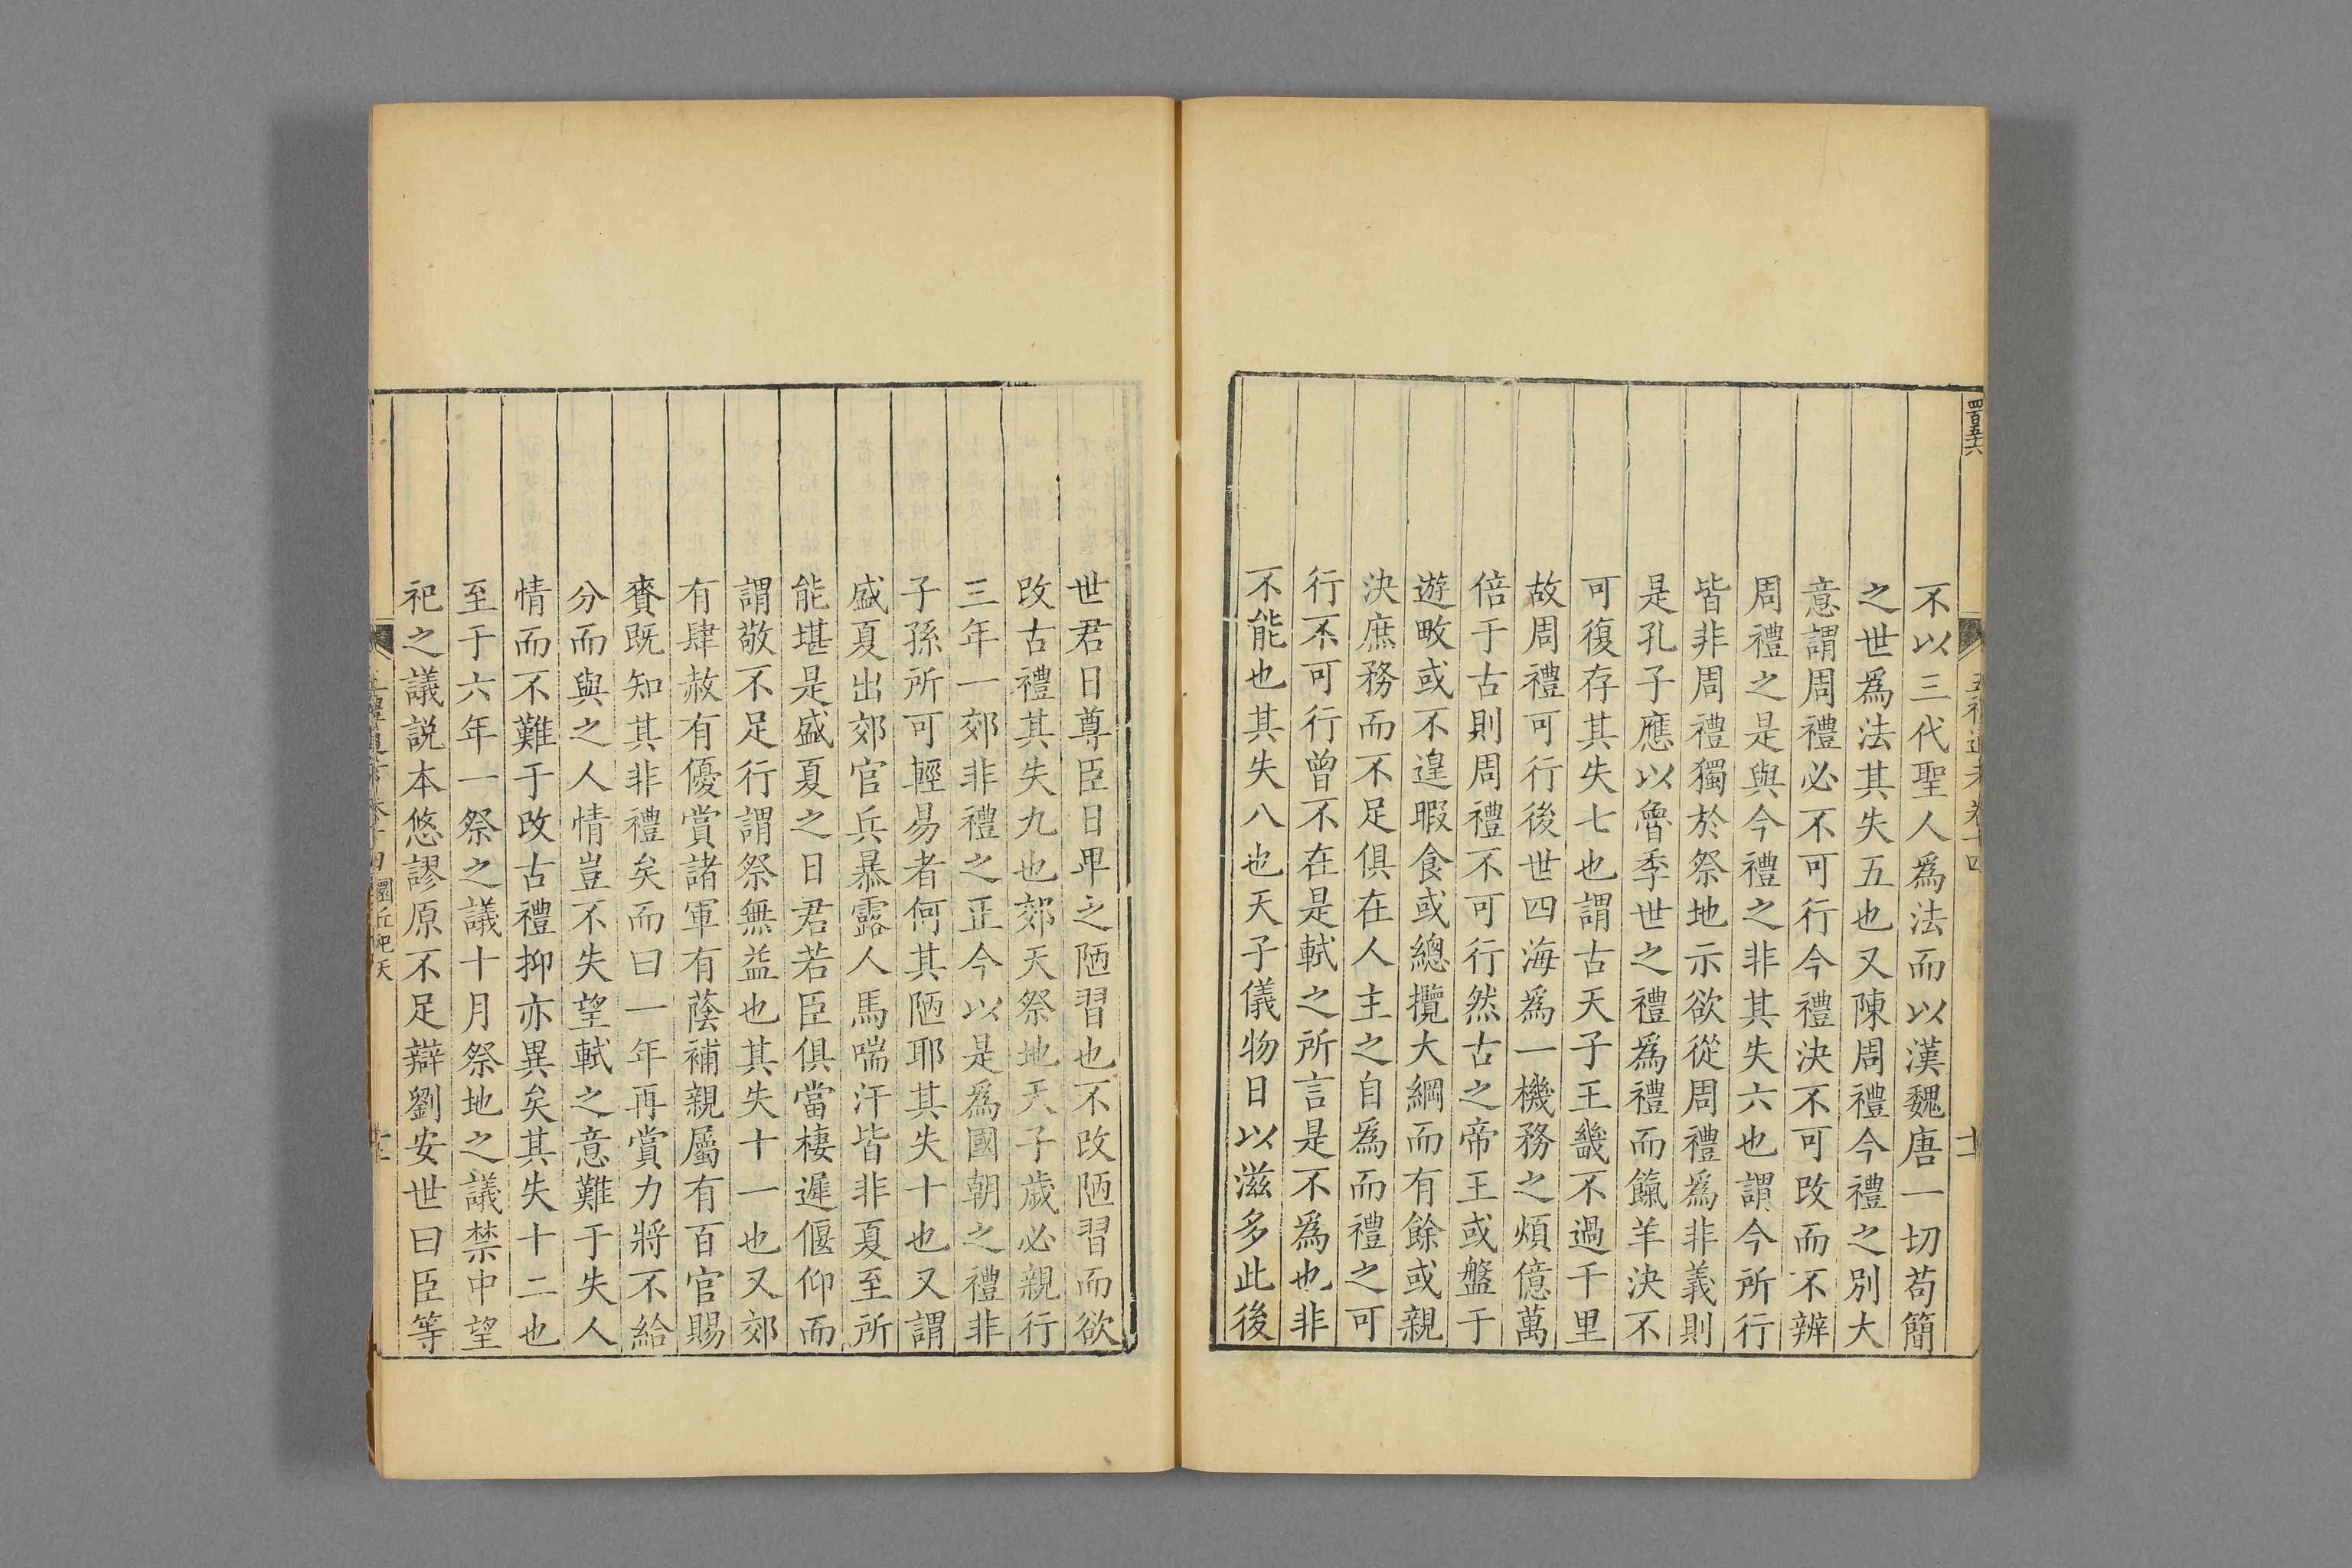 四百五十六
不以三代聖人爲法而以漢魏唐一切苟簡
之世爲法其失五也又陳周禮今禮之別大
意謂周禮必不可行今禮決不可改而不辨
周禮之是與今禮之非其失六也謂今所行
皆非周禮獨於祭地示欲從周禮爲非義則
是孔子應以魯季世之禮爲禮而餼羊決不
可復存其失七也謂古天子王畿不過千里
故周禮可行後世四海爲一機務之煩億萬
倍于古則周禮不可行然古之帝王或盤于
遊畋或不遑暇食或總攬大綱而有餘或親
決庶務而不足俱在人主之自爲而禮之可
行不可行曾不在是軾之所言是不爲也非
不能也其失八也天子儀物日以滋多此後
世君日尊臣日卑之陋習也不改陋習而欲
改古禮其失九也郊天祭地天子歲必親行
三年一郊非禮之正今以是爲國朝之禮非
子孫所可輕易者何其陋耶其失十也又謂
盛夏出郊官兵暴露人馬喘汗皆非夏至所
能堪是盛夏之日君若臣俱當棲遲偃仰而
謂敬不足行謂祭無益也其失十一也又郊
有肆赦有優賞諸軍有蔭補親屬有百官賜
賚既知其非禮矣而曰一年再賞力將不給
分而與之人情豈不失望軾之意難于失人
情而不難于改古禮抑亦異矣其失十二也
至于六年一祭之議十月祭地之議禁中望
祀之議説本悠謬原不足辯劉安世曰臣等
圜丘祀天